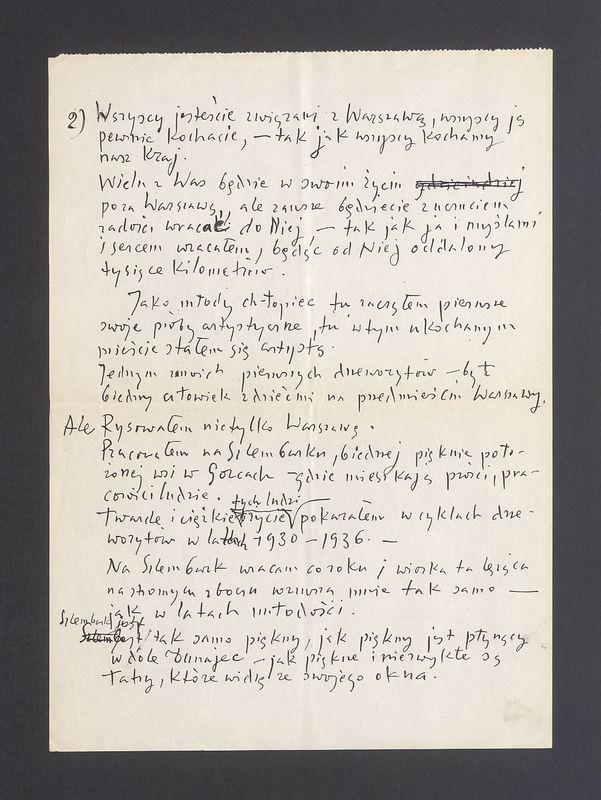 2) Wszyscy jesteście związani z Warszawą, wszyscy ją
pewnie kochacie, – tak jak wszyscy kochamy
nasz kraj.
Wielu z Was będzie w swoim życiu gdzieindziej
poza Warszawą, ale zawsze będziecie z uczuciem
radości wracali do Niej – tak jak ja i myślami
i sercem wracałem, będąc od Niej oddalony
tysiące kilometrów.
Jako młody chłopiec tu zacząłem pierwsze
swoje próby artystyczne, tu w tym ukochanym
mieście stałem się artystą.
Jednym z moich pierwszych drzeworytów – był
biedny człowiek z dziećmi na przedmieściu Warszawy.
Ale Rysowałem nietylko Warszawę.
Pracowałem na Szlembarku, biednej pięknie poło-
żonej wsi w Gorcach – gdzie mieszkają prości, pra-
cowici ludzie.
tych ludzi
Twarde i ciężkie życie pokazałem w cyklach drze-
worytów w latach 1930 – 1936. –
Na Szlembark wracam co roku i wioska ta leżąca
na stromym zboczu wzrusza mnie tak samo —
jak w latach młodości.
Szlembark jest
Szlemb jest tak samo piękny, jak piękny jest płynący
w dole Dunajec – jak piękne i niezwykłe są
Tatry, które widzę ze swojego okna.